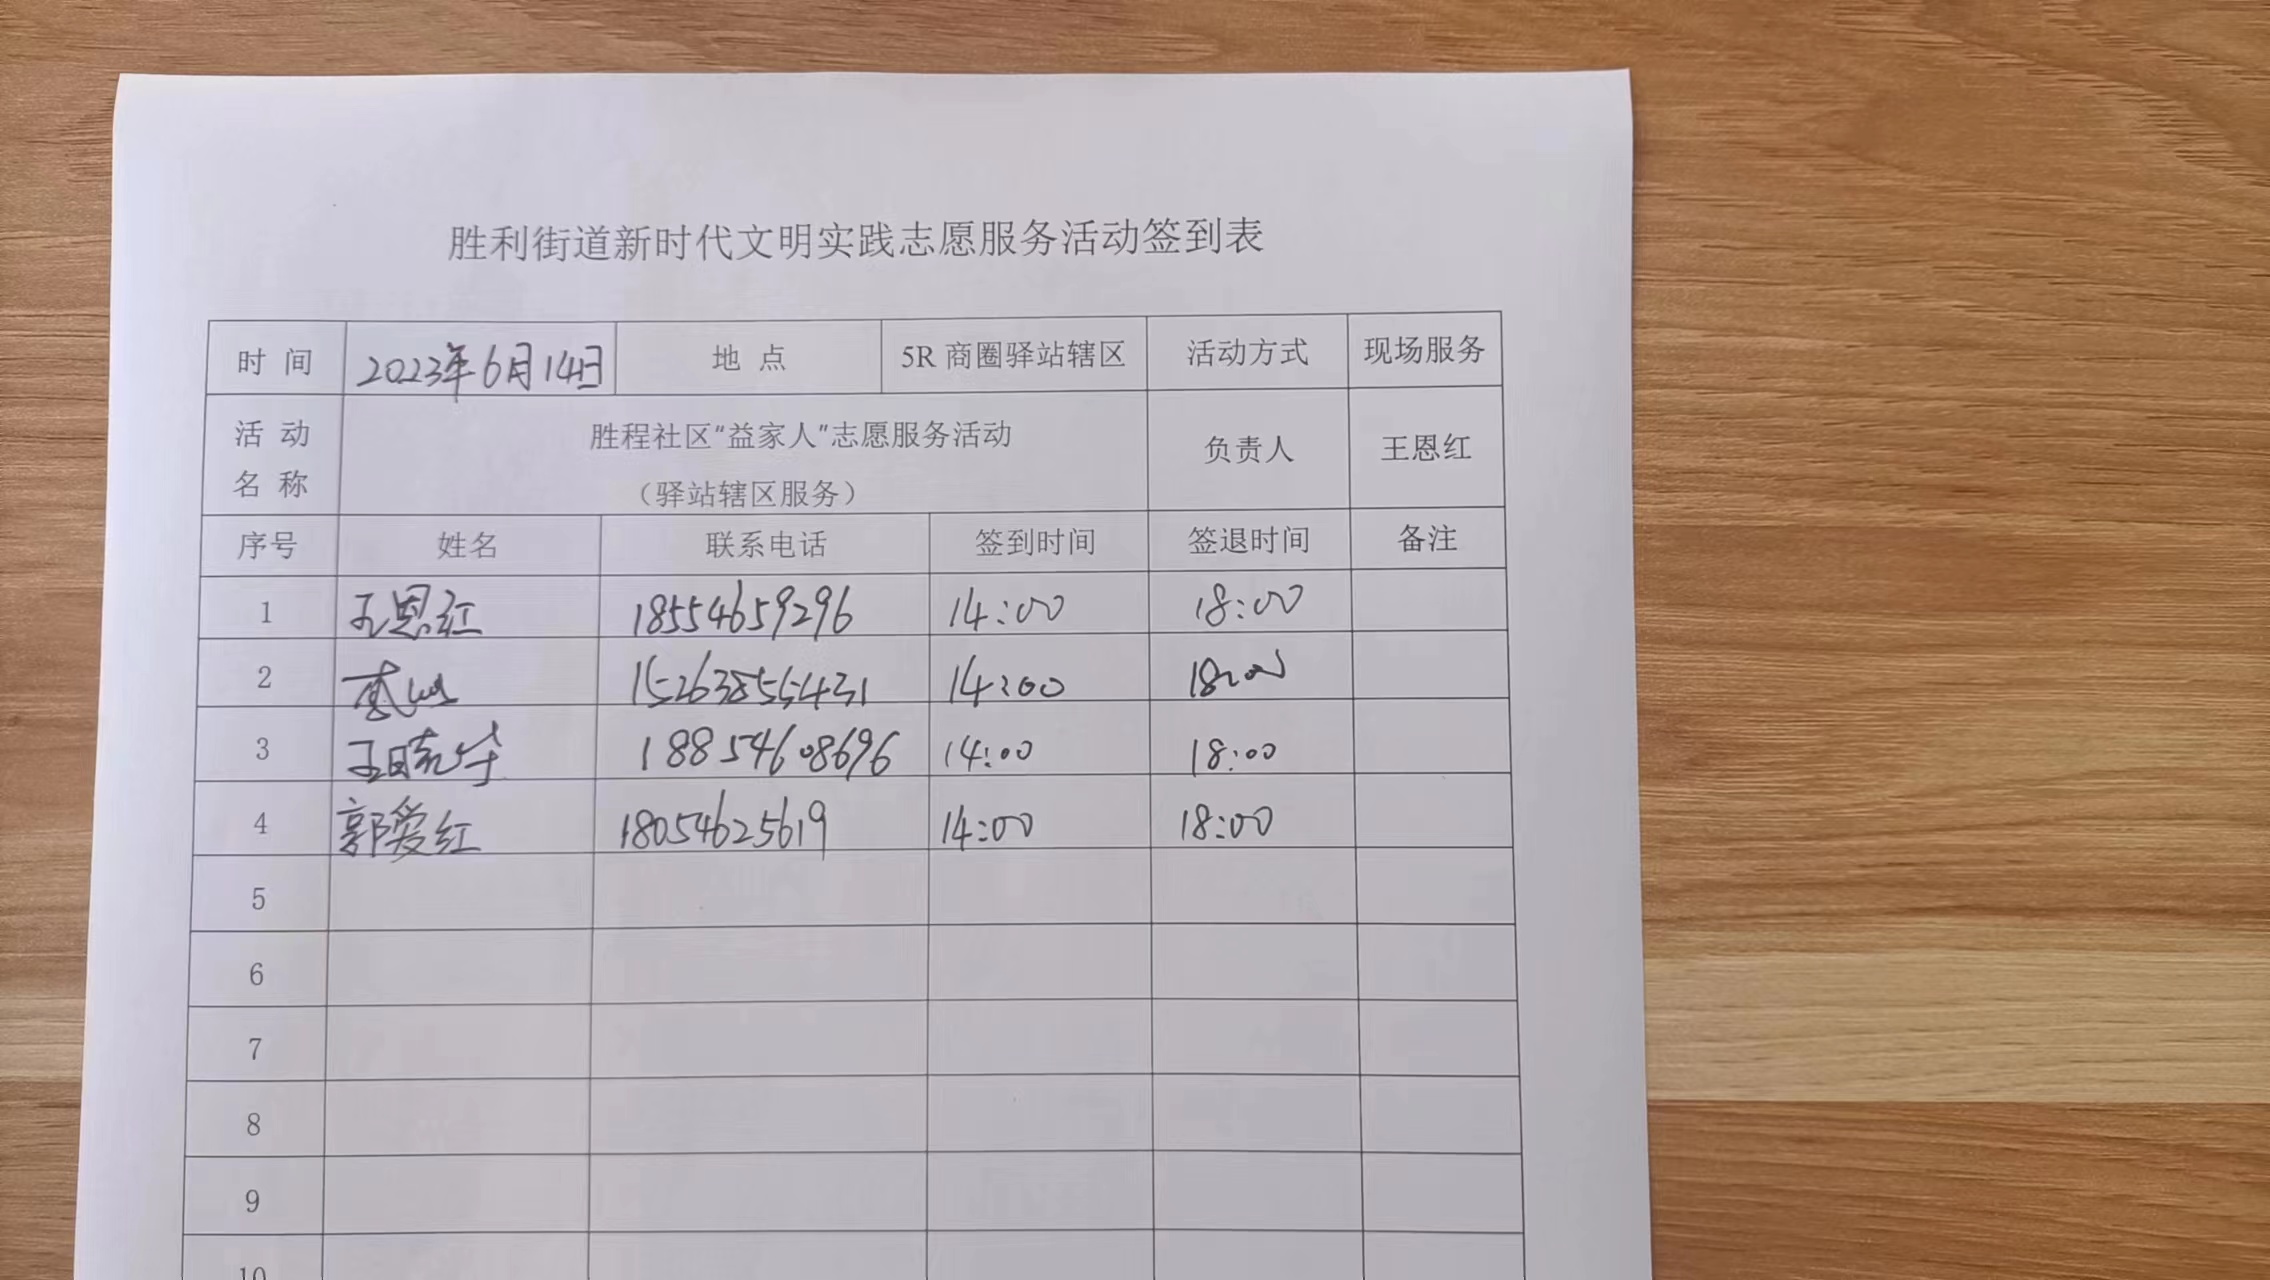 胜利街道新时代文明实践志愿服务活动签到表
时 间 2023年6月14日 地 点 5R 商圈驿站辖区 活动方式 现场服务
活 动 名 称 胜程社区“益家人”志愿服务活动 负责人 王恩红
（驿站辖区服务）
序号 姓名 联系电话 签到时间 签退时间 备注
1 王恩红 18554659296 14:00 18:00
2 14:00 18:00
3 王晓华 18854608696 14:00 18:00
4 郭爱红 18054625619 14:00 18:00
5
6
7
8
9
10